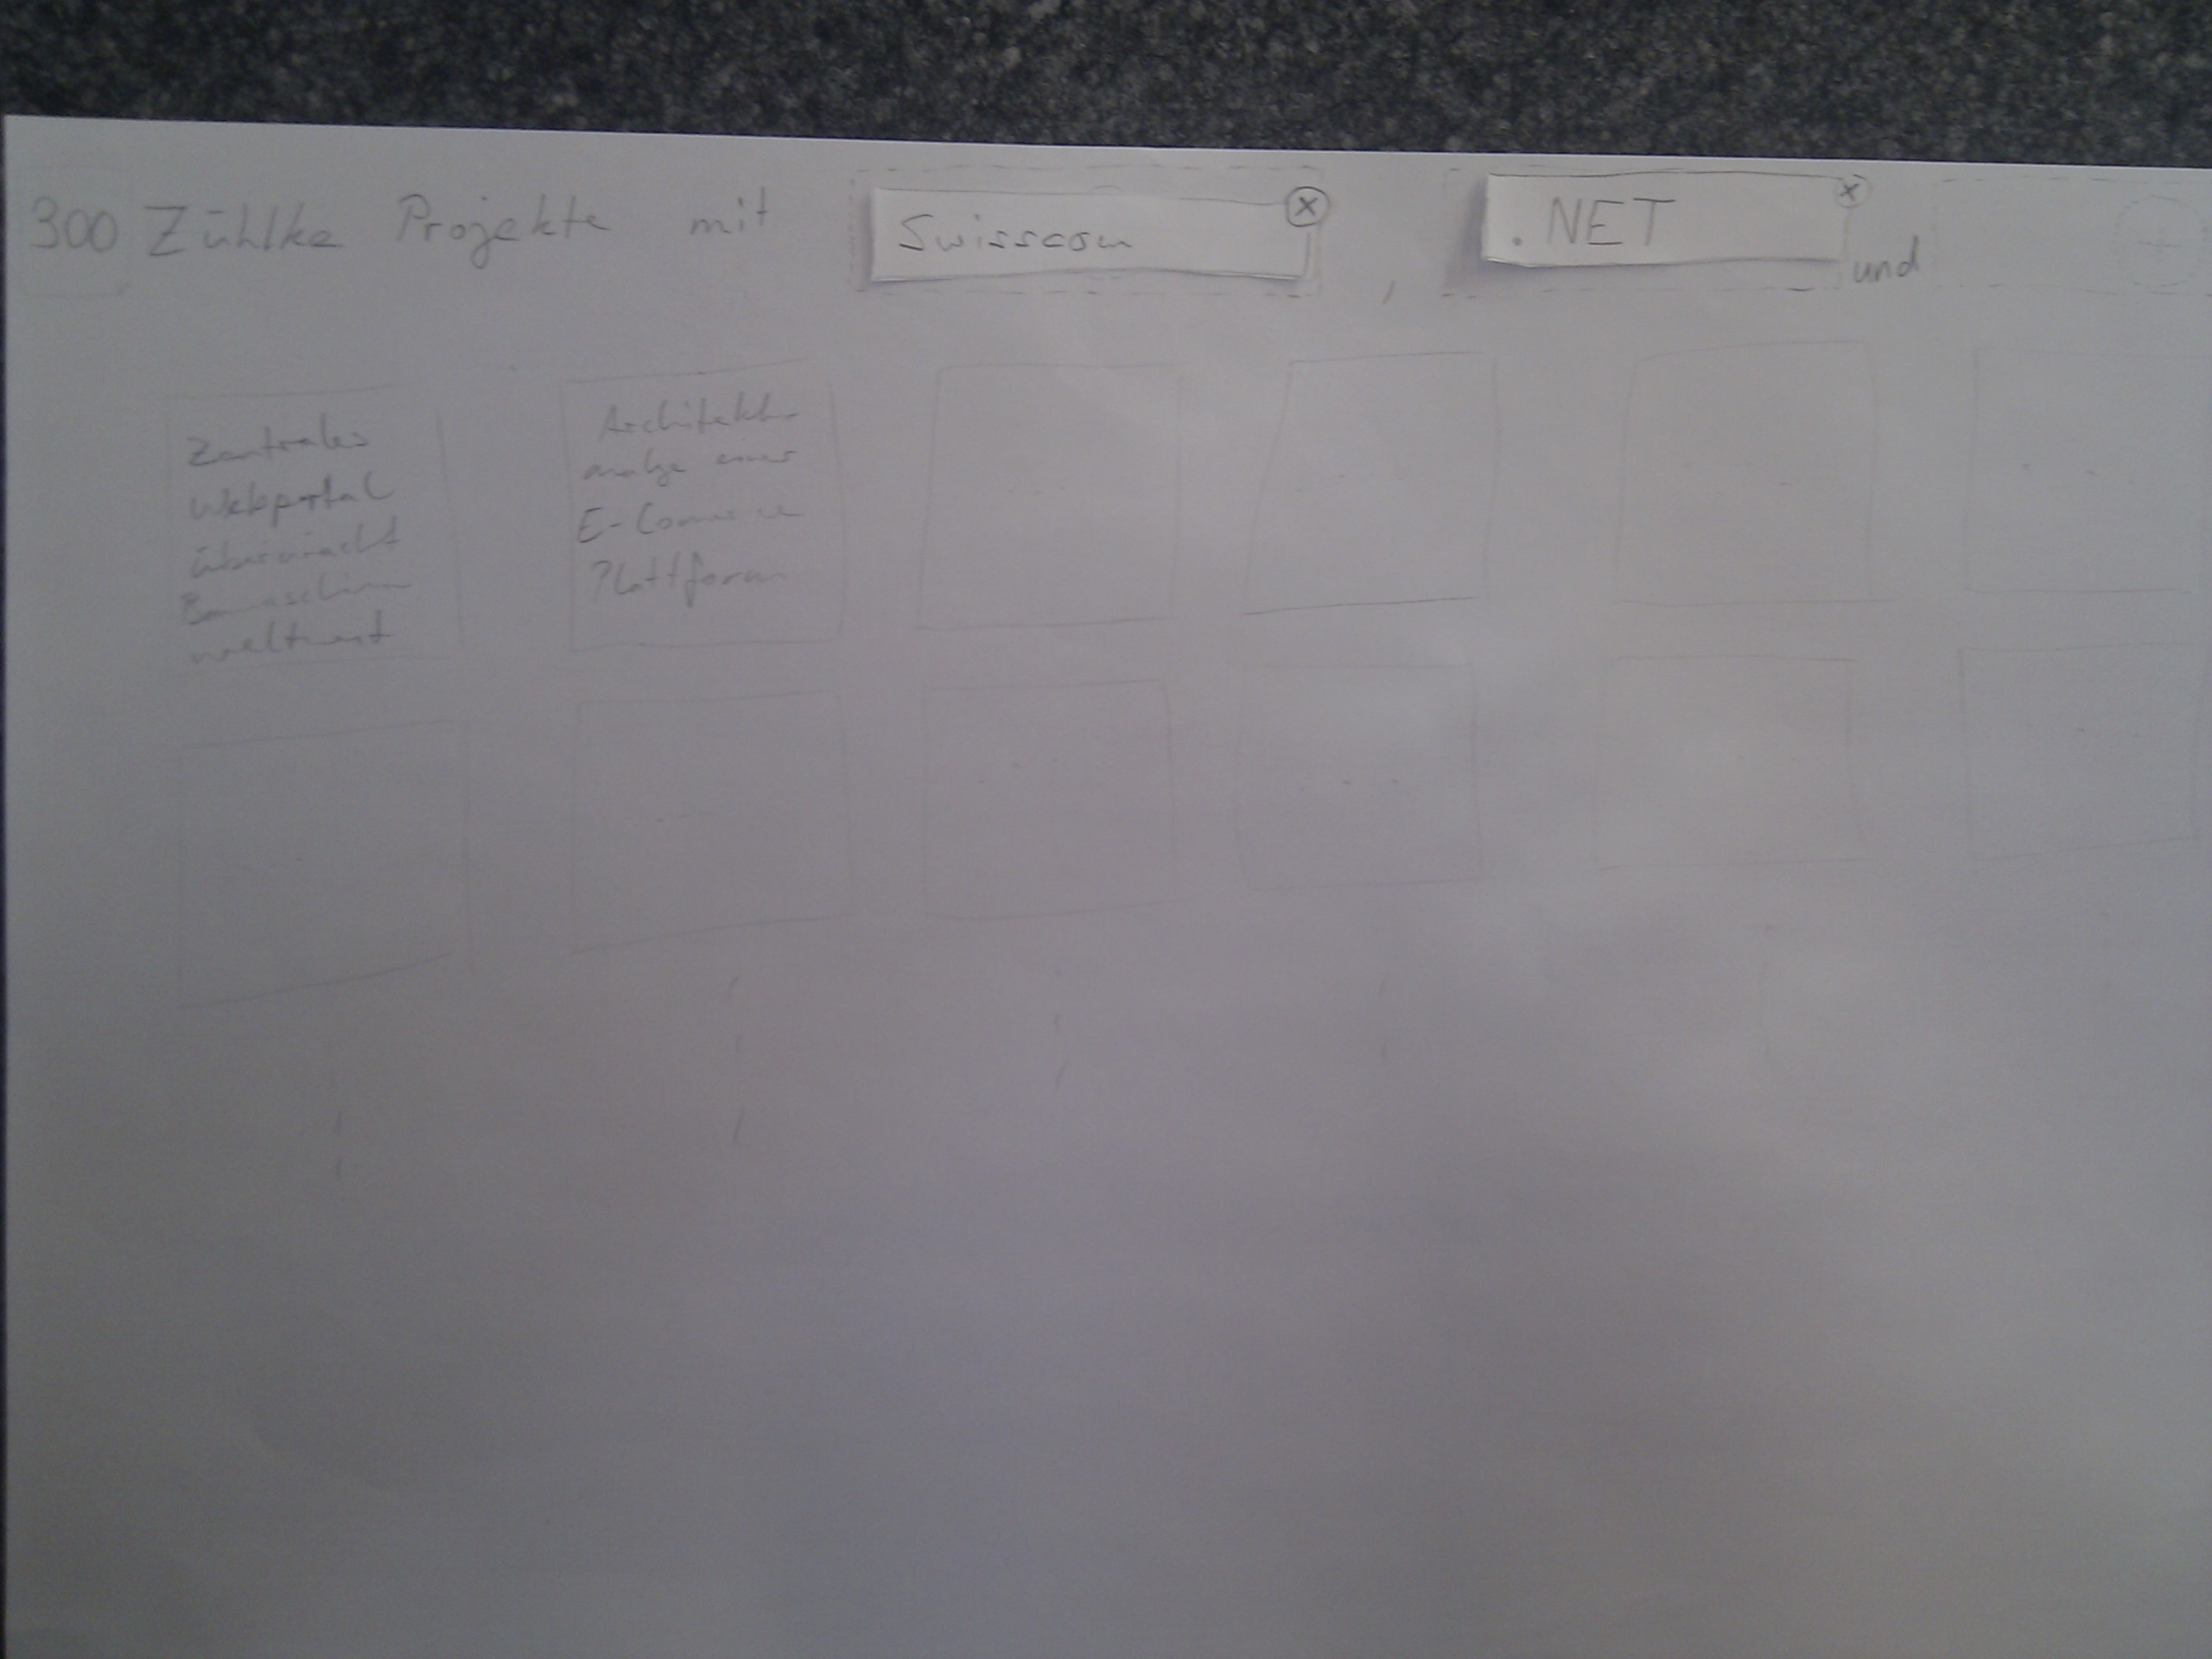 300 Zühlke Projekte mit Swisscom ⓧ , .NET ⓧ und
Zentrales
Webportal
überwacht
Baumaschinen
weltweit
Architektur
analyse einer
E-Commerce
Plattform